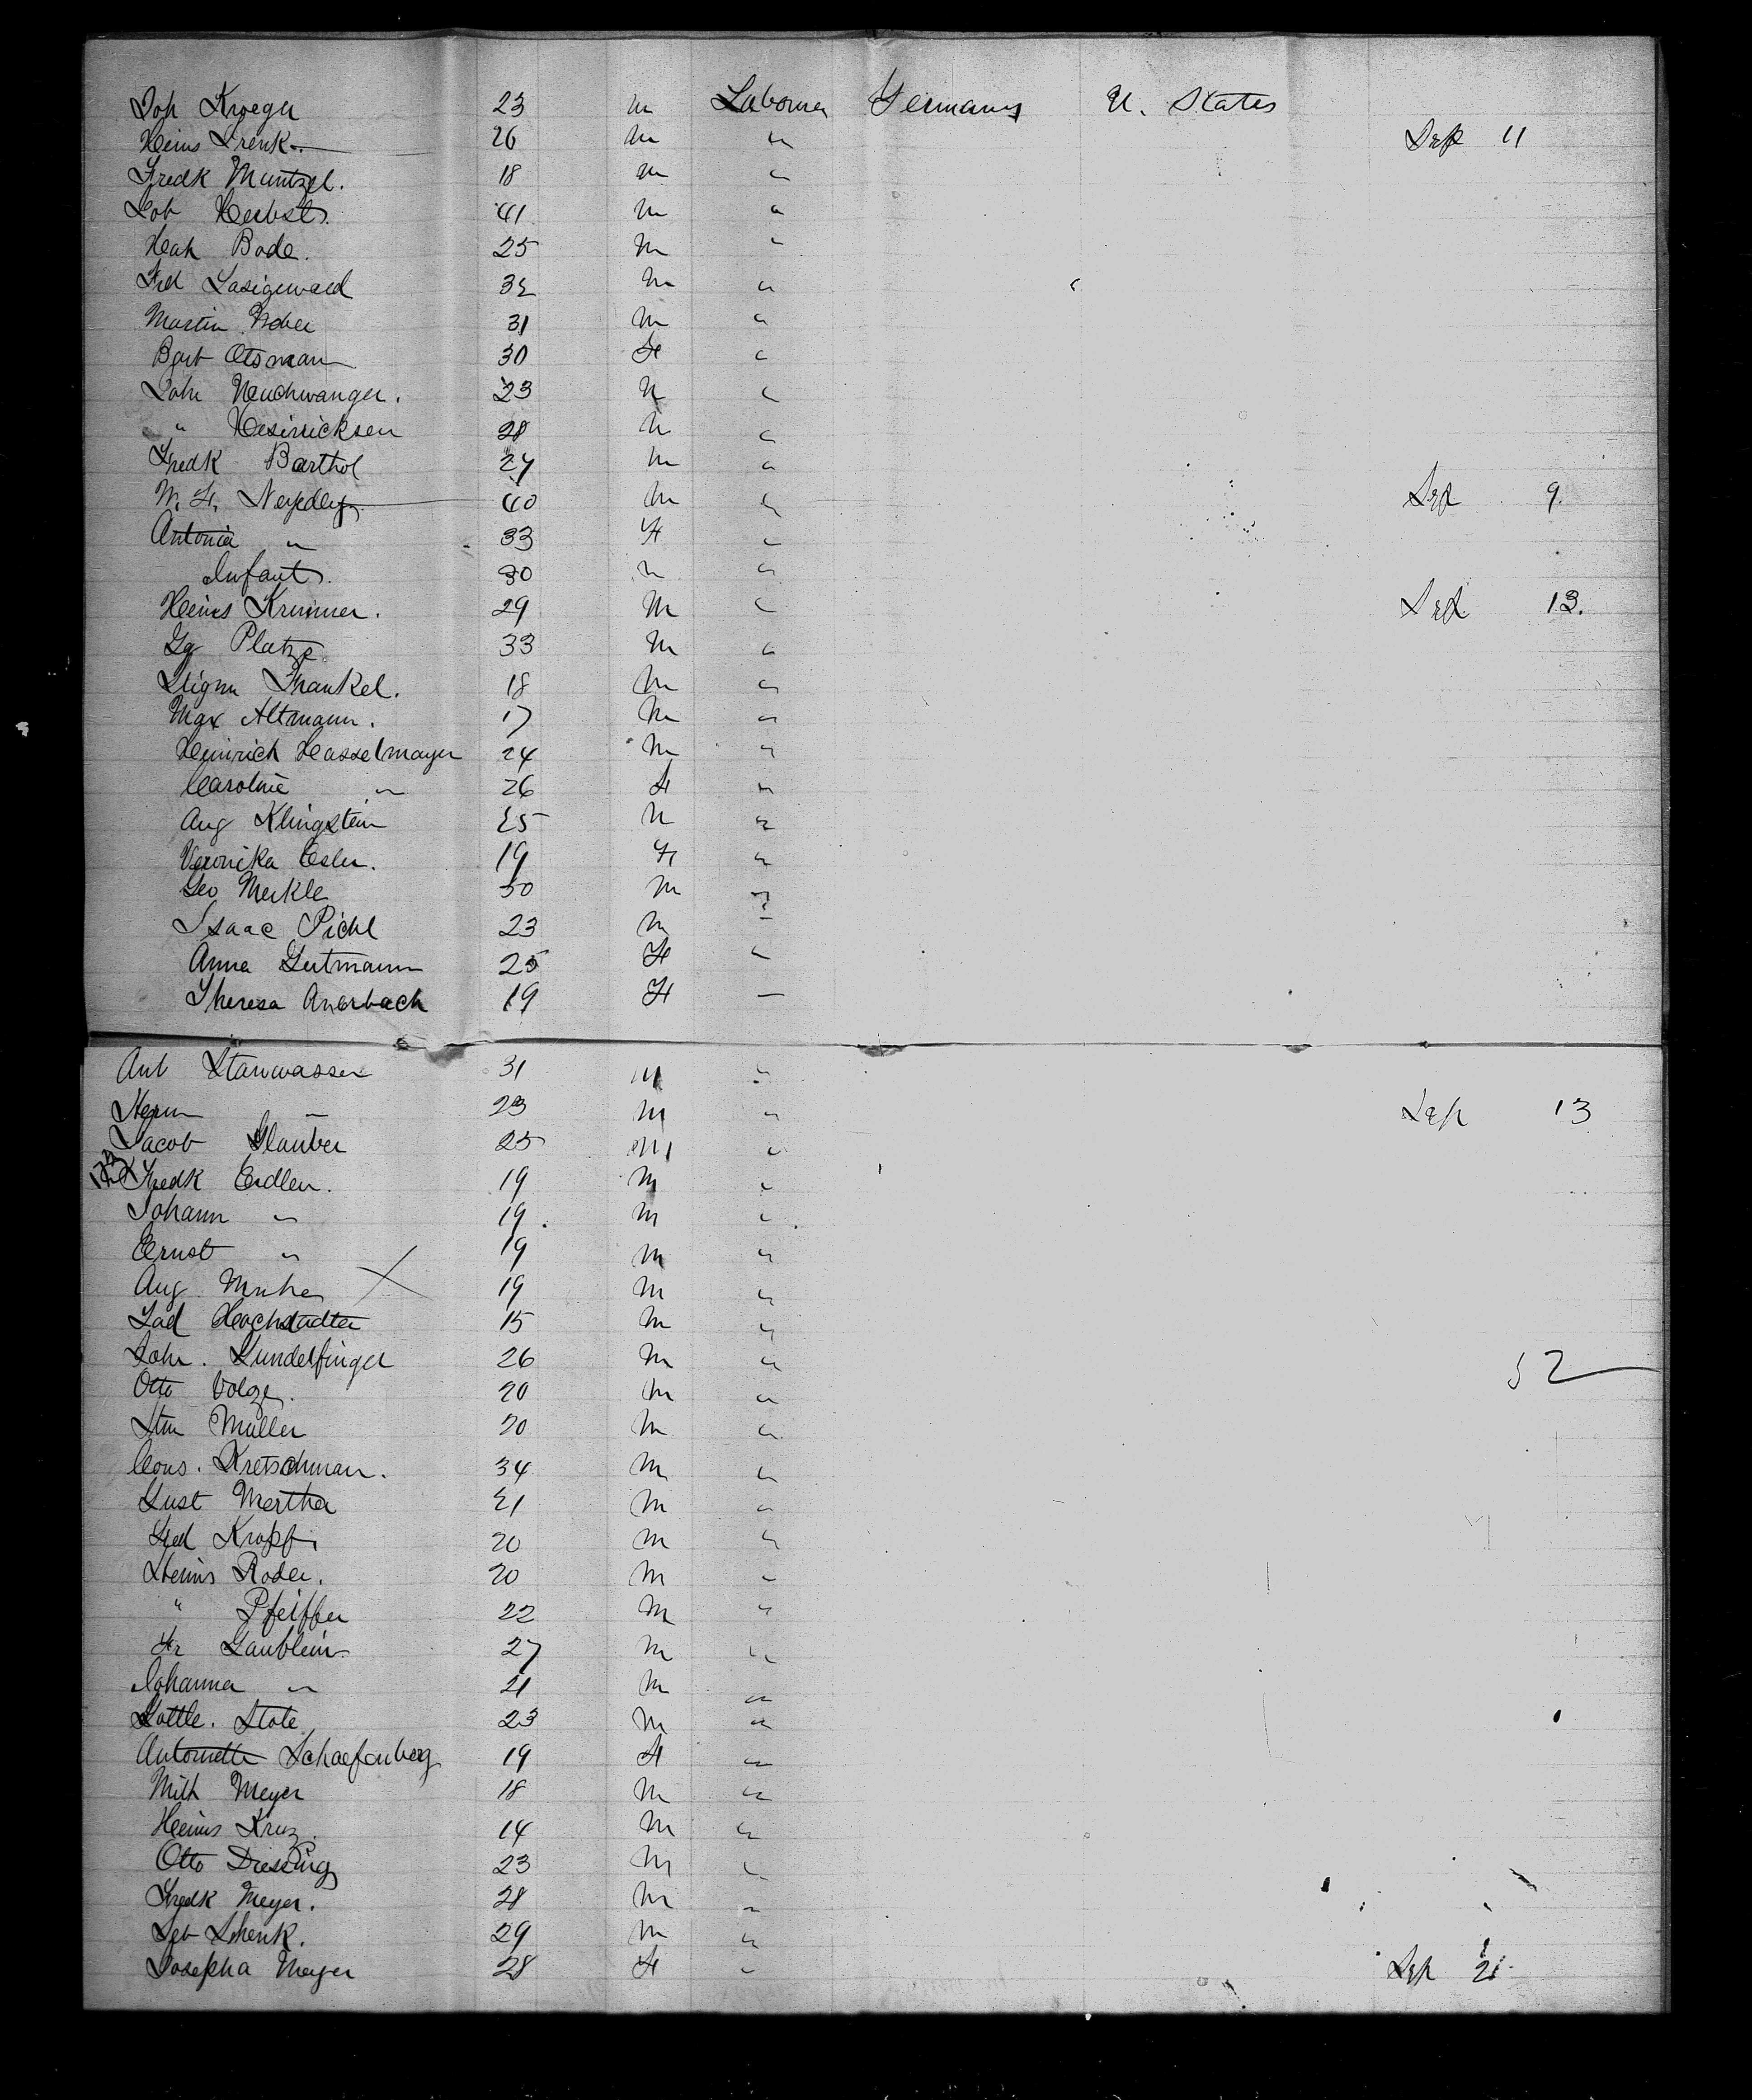 Joh Kroeger 23 m Labourer Germany U. States
Heinr Frenk 26 m " Sep 11
Fredk Muntzel. 18 m "
Herbst 41 m "
Bode. 25 m "
32 m "
Martin 31 m "
30 F "
Joh 23 m "
" 28 m "
Fredk Barthol 27 m "
W. F. 40 m " Sep 9.
Antonia " 33 F "
Infant 30 m "
Heinr Krummer. 29 m " Sep 13.
Gg Platze 33 m "
Frankel. 18 m "
Max Altmann. 17 m "
Heinrich Hasselmayer 24 m "
Caroline " 26 F "
Aug Klingstein 25 m "
Veronika Esler. 19 F "
Geo Merkle 30 m "
Isaac Pichl 23 m "
Anna Gutmann 25 F "
Theresa Auerbach 19 F "
Ant 31 m "
Herm " 23 m " Sep 13
Jacob Glauber 25 m "
Fredk Erdlen. 19 m "
Johann " 19. m "
Ernst " 19 m "
Aug. X 19 m "
Hochstadter 15 m "
Joh. Gundelfinger 26 m " 52
Otto Volze. 20 m "
Müller 20 m "
Cons. Kretschman. 34 m "
Gust Mertha 21 m "
Fred Kropf 20 m "
Heinr Roder. 20 m "
" Pfeiffer 22 m "
Fr Laublein 27 m "
Johanna " 21 m "
Gottle. 23 m "
Antoinette Schaefenberg 19 F "
Wilh Meyer 18 m "
Heinr Kruz. 14 m "
Otto Diessing 23 m "
Fredk Meyer. 28 m "
Seb Schenk. 29 m "
Josepha Meyer 28 F " Sep 21